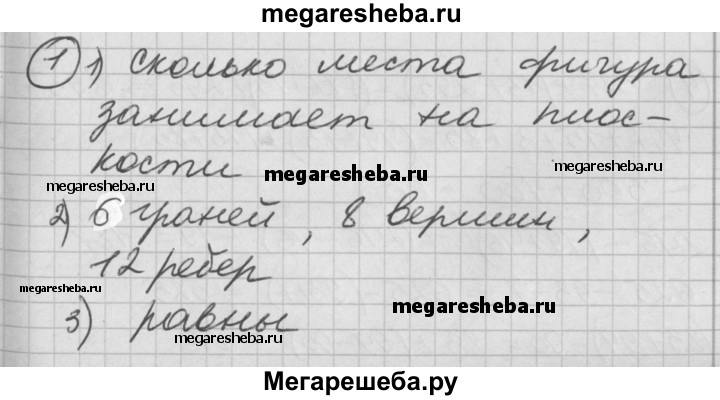 megaresheba.ru
1 1) сколько места фигура
занимает на плос-
кости
megaresheba.ru
megaresheba.ru
megaresheba.ru
2) 6 граней, 8 вершин,
12 ребер
megaresheba.ru
megaresheba.ru
3) равны
megaresheba.ru
Мегарешеба.ру